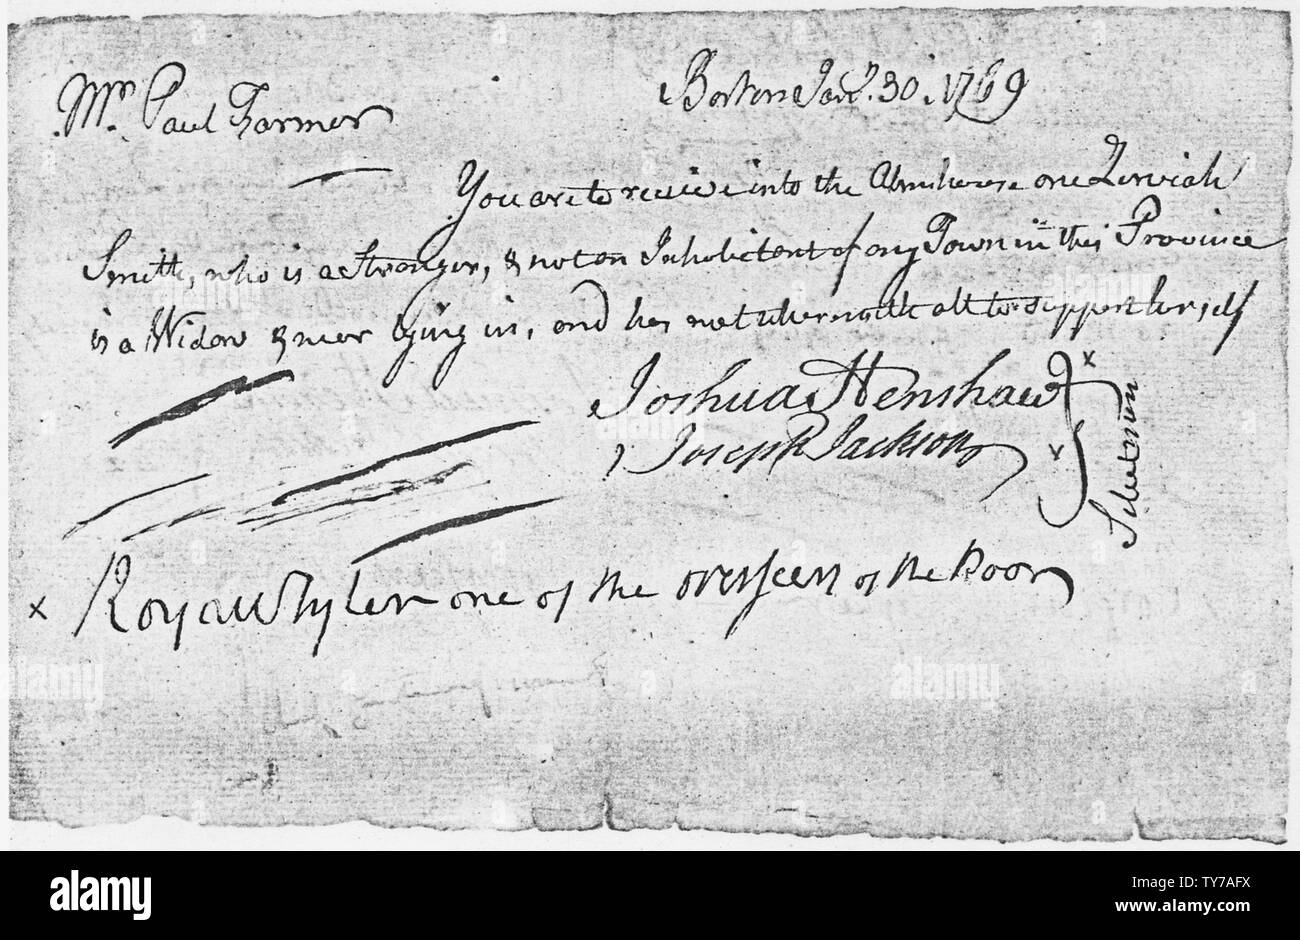 Mr. Paul Farmer
Boston Jany. 30. 1769
You are to receive into the Almshouse one Zerviah
Smith, who is a Stranger, & not an Inhabitent of any Town in this Province
is a Widow & near lying in, and has not wherewith all to support herself
Joshua Henshaw x
Joseph Jackson v
Selectmen
x Royall Tyler one of the overseers of the Poor
alamy
Image ID: TY7AFX
www.alamy.com